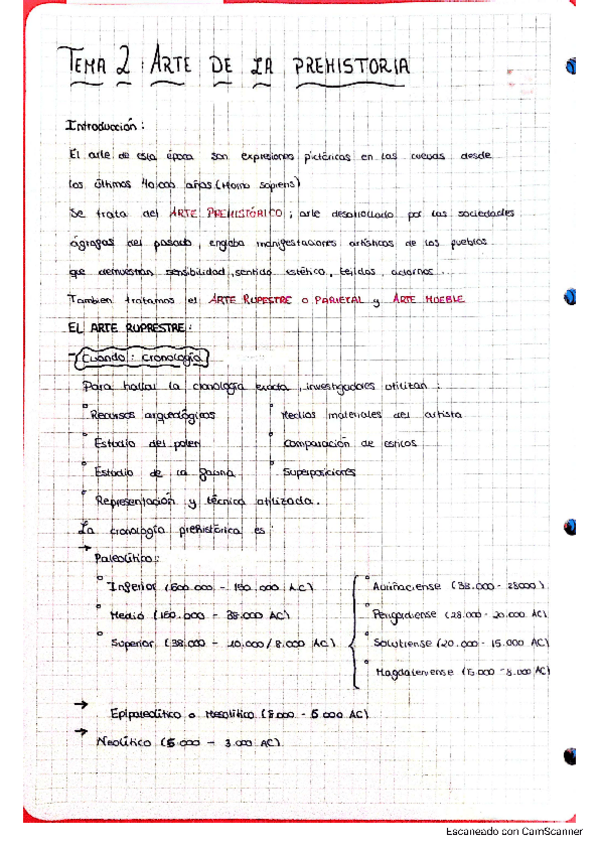 TEMA 2: ARTE DE LA PREHISTORIA
Introducción:
El arte de esta época son expresiones pictóricas en las cuevas desde
los últimos 40.000 años (Homo sapiens)
Se trata del ARTE PREHISTÓRICO; arte desarrollado por las sociedades
ágrafas del pasado, engloba manifestaciones artísticas de los pueblos
que demuestran sensibilidad, sentido estético, tejidos, adornos.
Tambien tratamos el ARTE RUPESTRE O PARIETAL y ARTE MUEBLE
EL ARTE RUPRESTRE:
- Cuando: cronología
Para hallar la cronología exacta, investigadores utilizan:
° Recursos arqueológicos
° Medios materiales del artista
° Estudio del polen
° Comparación de estilos
° Estudio de la fauna
° Superposiciones
° Representación y técnica utilizada.
La cronología prehistórica es
→ Paleolítico:
° Inferior (600.000 - 150.000 A.C)
° Auriñaciense (38.000 - 28000)
° Medio (150.000 - 38.000 AC)
° Perigordiense (28.000 - 20.000 AC)
° Superior (38.000 - 10.000/8.000 AC)
° Solutrense (20.000 - 15.000 AC)
° Magdaleniense (15.000 - 8.000 AC)
→ Epipaleolítico o Mesolítico (8.000 - 5.000 AC)
→ Neolítico (5.000 - 3.000 AC)
Escaneado con CamScanner